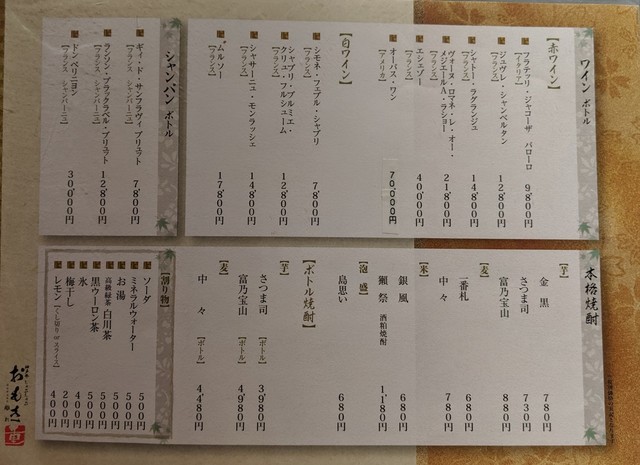 ワイン ボトル
【赤ワイン】
フラテッリ・ジャコーザ バローロ
【イタリア】
9'800円
ジュヴレ・シャンベルタン
【フランス】
12'800円
シャトー・ラグランジュ
【フランス】
14'800円
ヴォーヌ・ロマネ・レ・オー・
メジエールA・ラショー
【フランス】
21'800円
エシェゾー
【フランス】
40'000円
オーパス・ワン
【アメリカ】
70'000円
【白ワイン】
シモネ・フェブル・シャブリ
【フランス】
7'800円
シャブリ・プルミエ・
クリュ・フルシューム
【フランス】
12'800円
シャサーニュ・モンラッシェ
【フランス】
14'800円
ムルソー
【フランス】
17'800円
シャンパン ボトル
ギィ・ド・サンフラヴィ ブリュット
【フランス シャンパーニュ】
7'800円
ランソン・ブラックラベル・ブリュット
【フランス シャンパーニュ】
12'800円
ドン・ペリニヨン
【フランス シャンパーニュ】
30'000円
本格焼酎
【芋】
金黒
780円
さつま司
730円
富乃宝山
880円
【麦】
一番札
680円
中々
780円
【米】
銀風
680円
獺祭 酒粕焼酎
1'180円
【泡盛】
島思い
680円
【ボトル焼酎】
【芋】
さつま司
【ボトル】
3'980円
富乃宝山
【ボトル】
4'980円
【麦】
中々
【ボトル】
4'480円
【割り物】
ソーダ
500円
ミネラルウォーター
500円
お湯
500円
高級緑茶 白川茶
500円
黒ウーロン茶
500円
氷
400円
梅干し
200円
レモン【くし切り or スライス】
400円
おもき